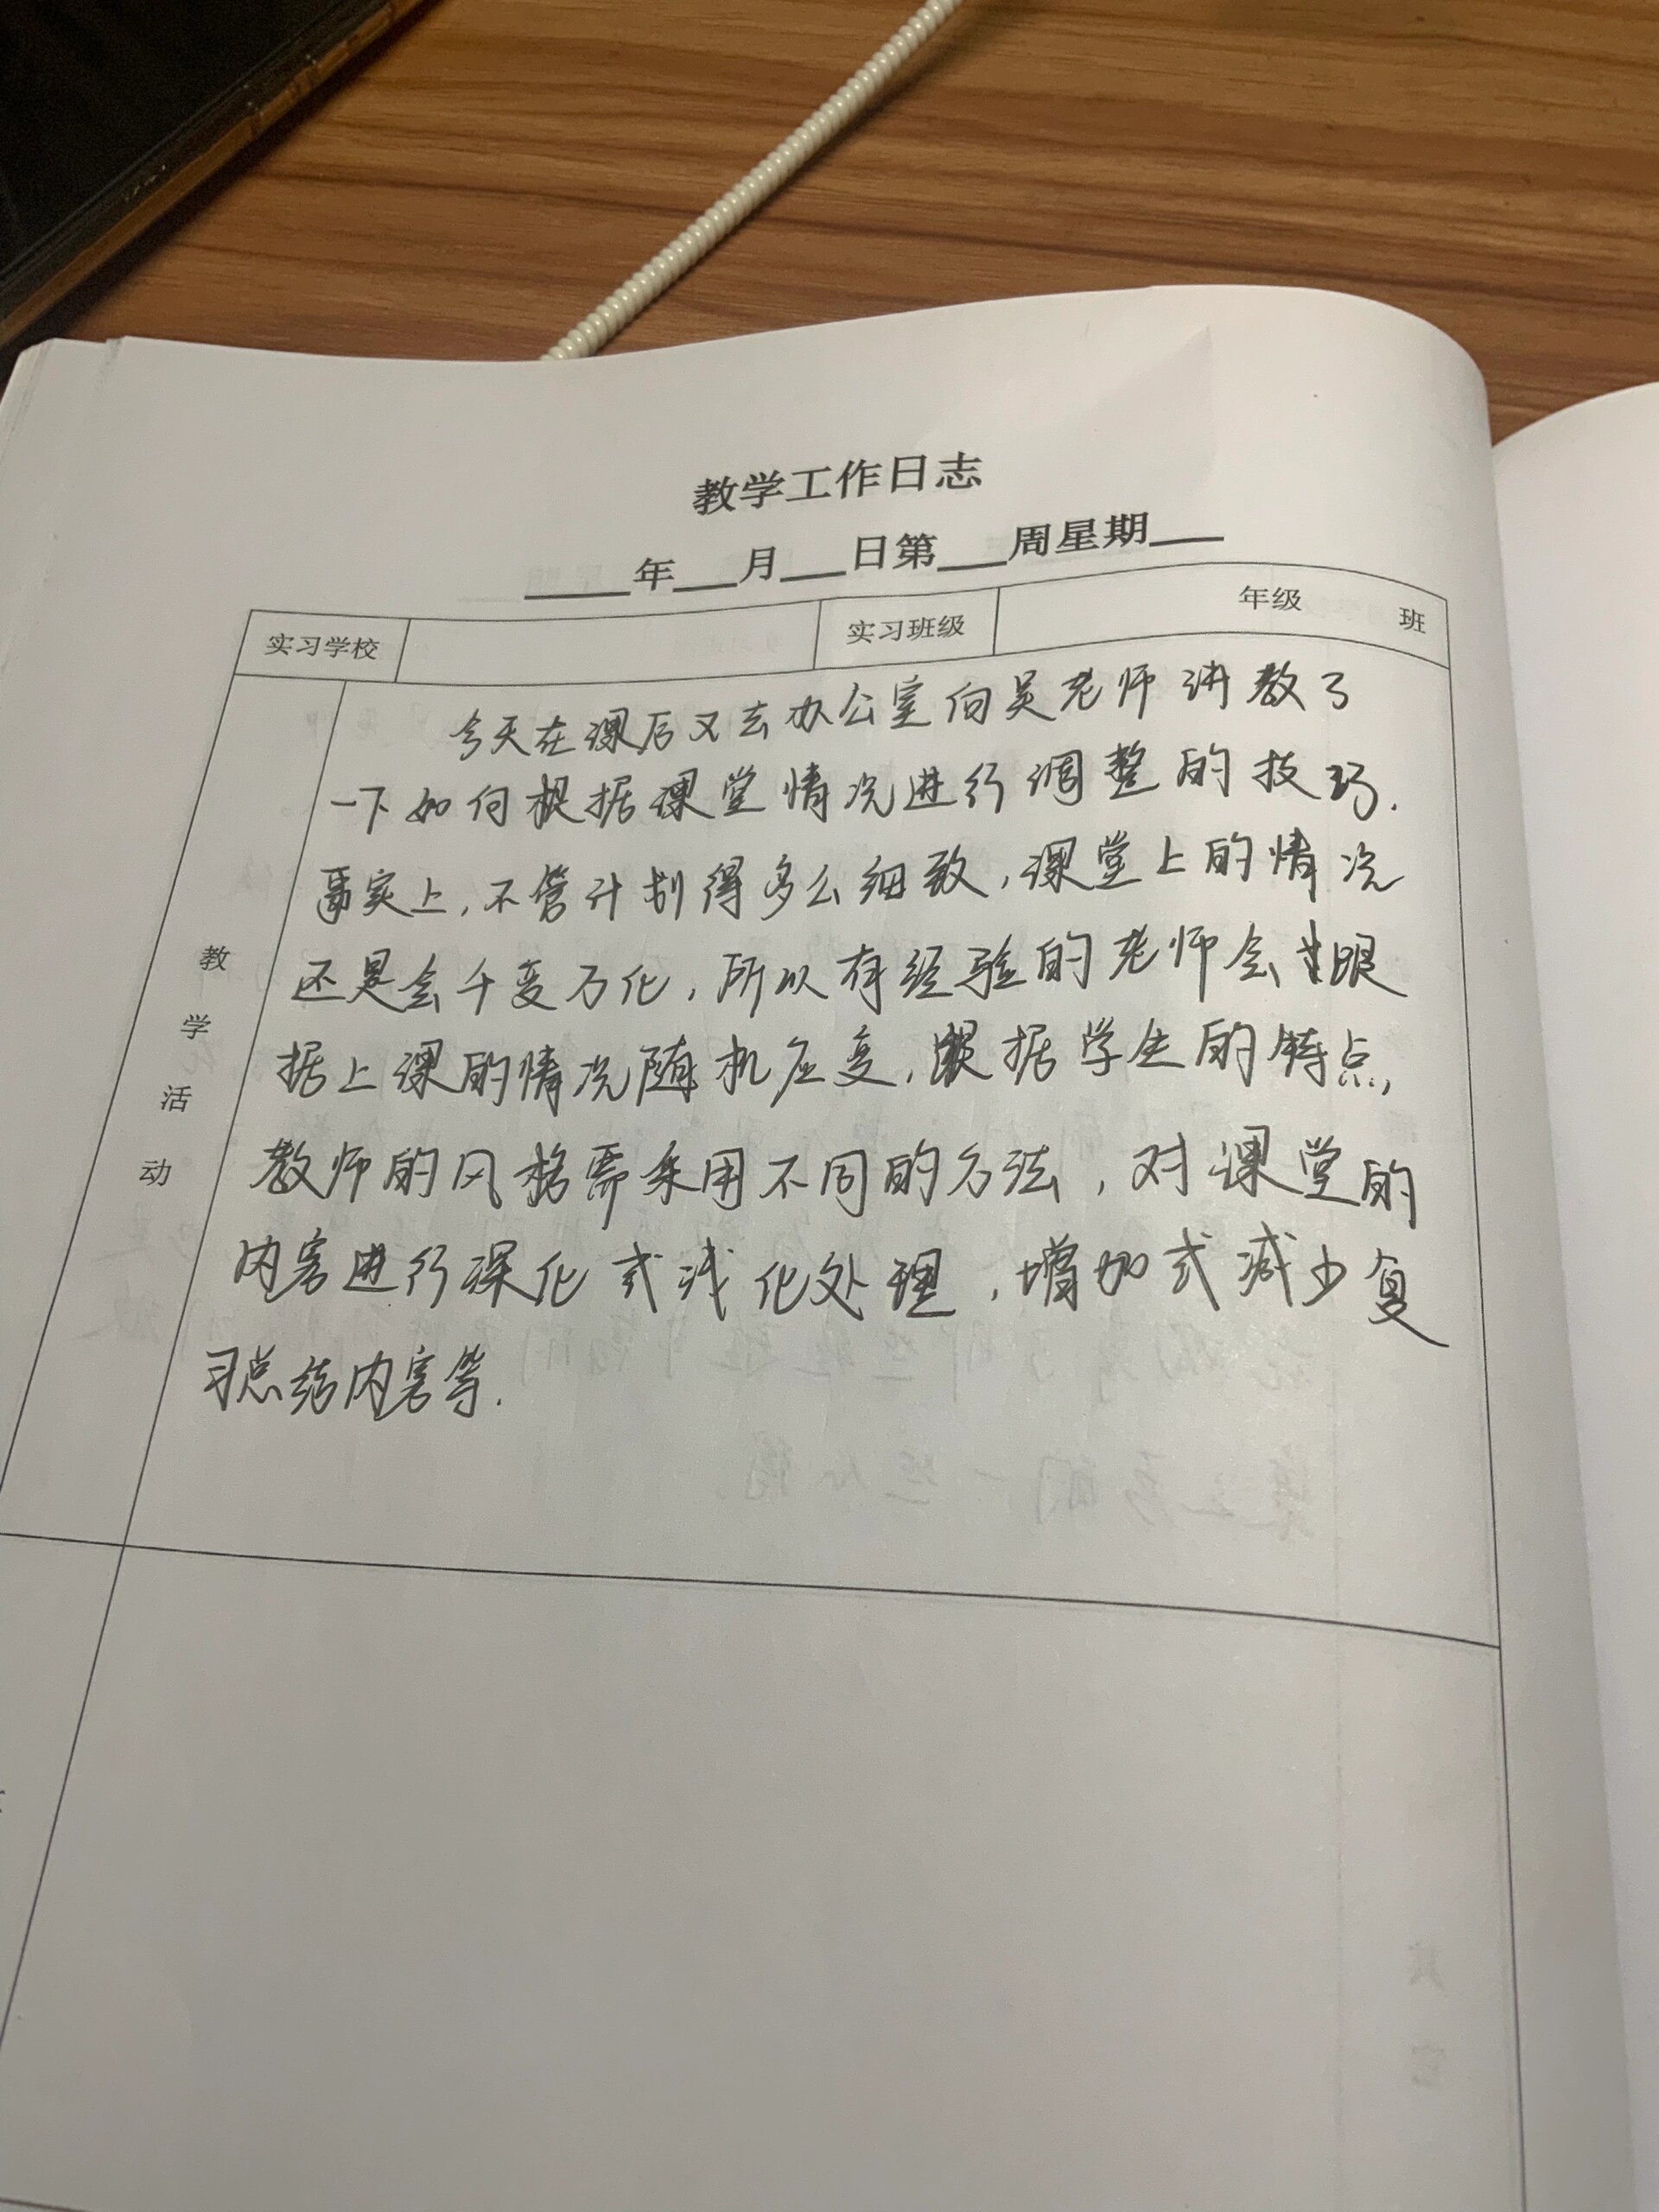 教学工作日志
年 月 日第 周星期
实习学校 实习班级 年级 班
教学活动
今天在课后又去办公室向吴老师讲教了
一下如何根据课堂情况进行调整的技巧.
事实上,不管计划得多么细致,课堂上的情况
还是会千变万化,所以有经验的老师会根
据上课的情况随机应变,根据学生的特点,
教师的风格需采用不同的方法,对课堂的
内容进行深化或浅化处理,增加或减少复
习总结内容等.